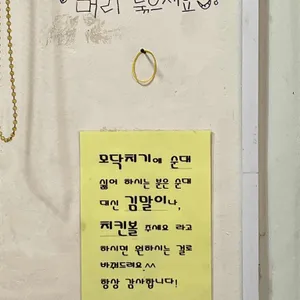 머리 묶으세요!
모닥치기에 순대
싫어 하시는 분은 순대
대신 김말이나,
치킨볼 주세요 라고
하시면 원하시는 걸로
바꿔드려요.^^
항상 감사합니다!